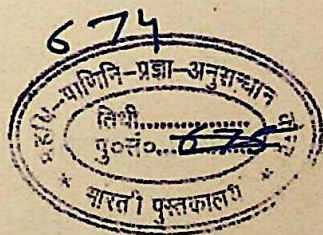 674
महर्षि-पाणिनि-प्रज्ञा-अनुसन्धान
तिथी..............
पु०सं०...675
* भारती पुस्तकालय *